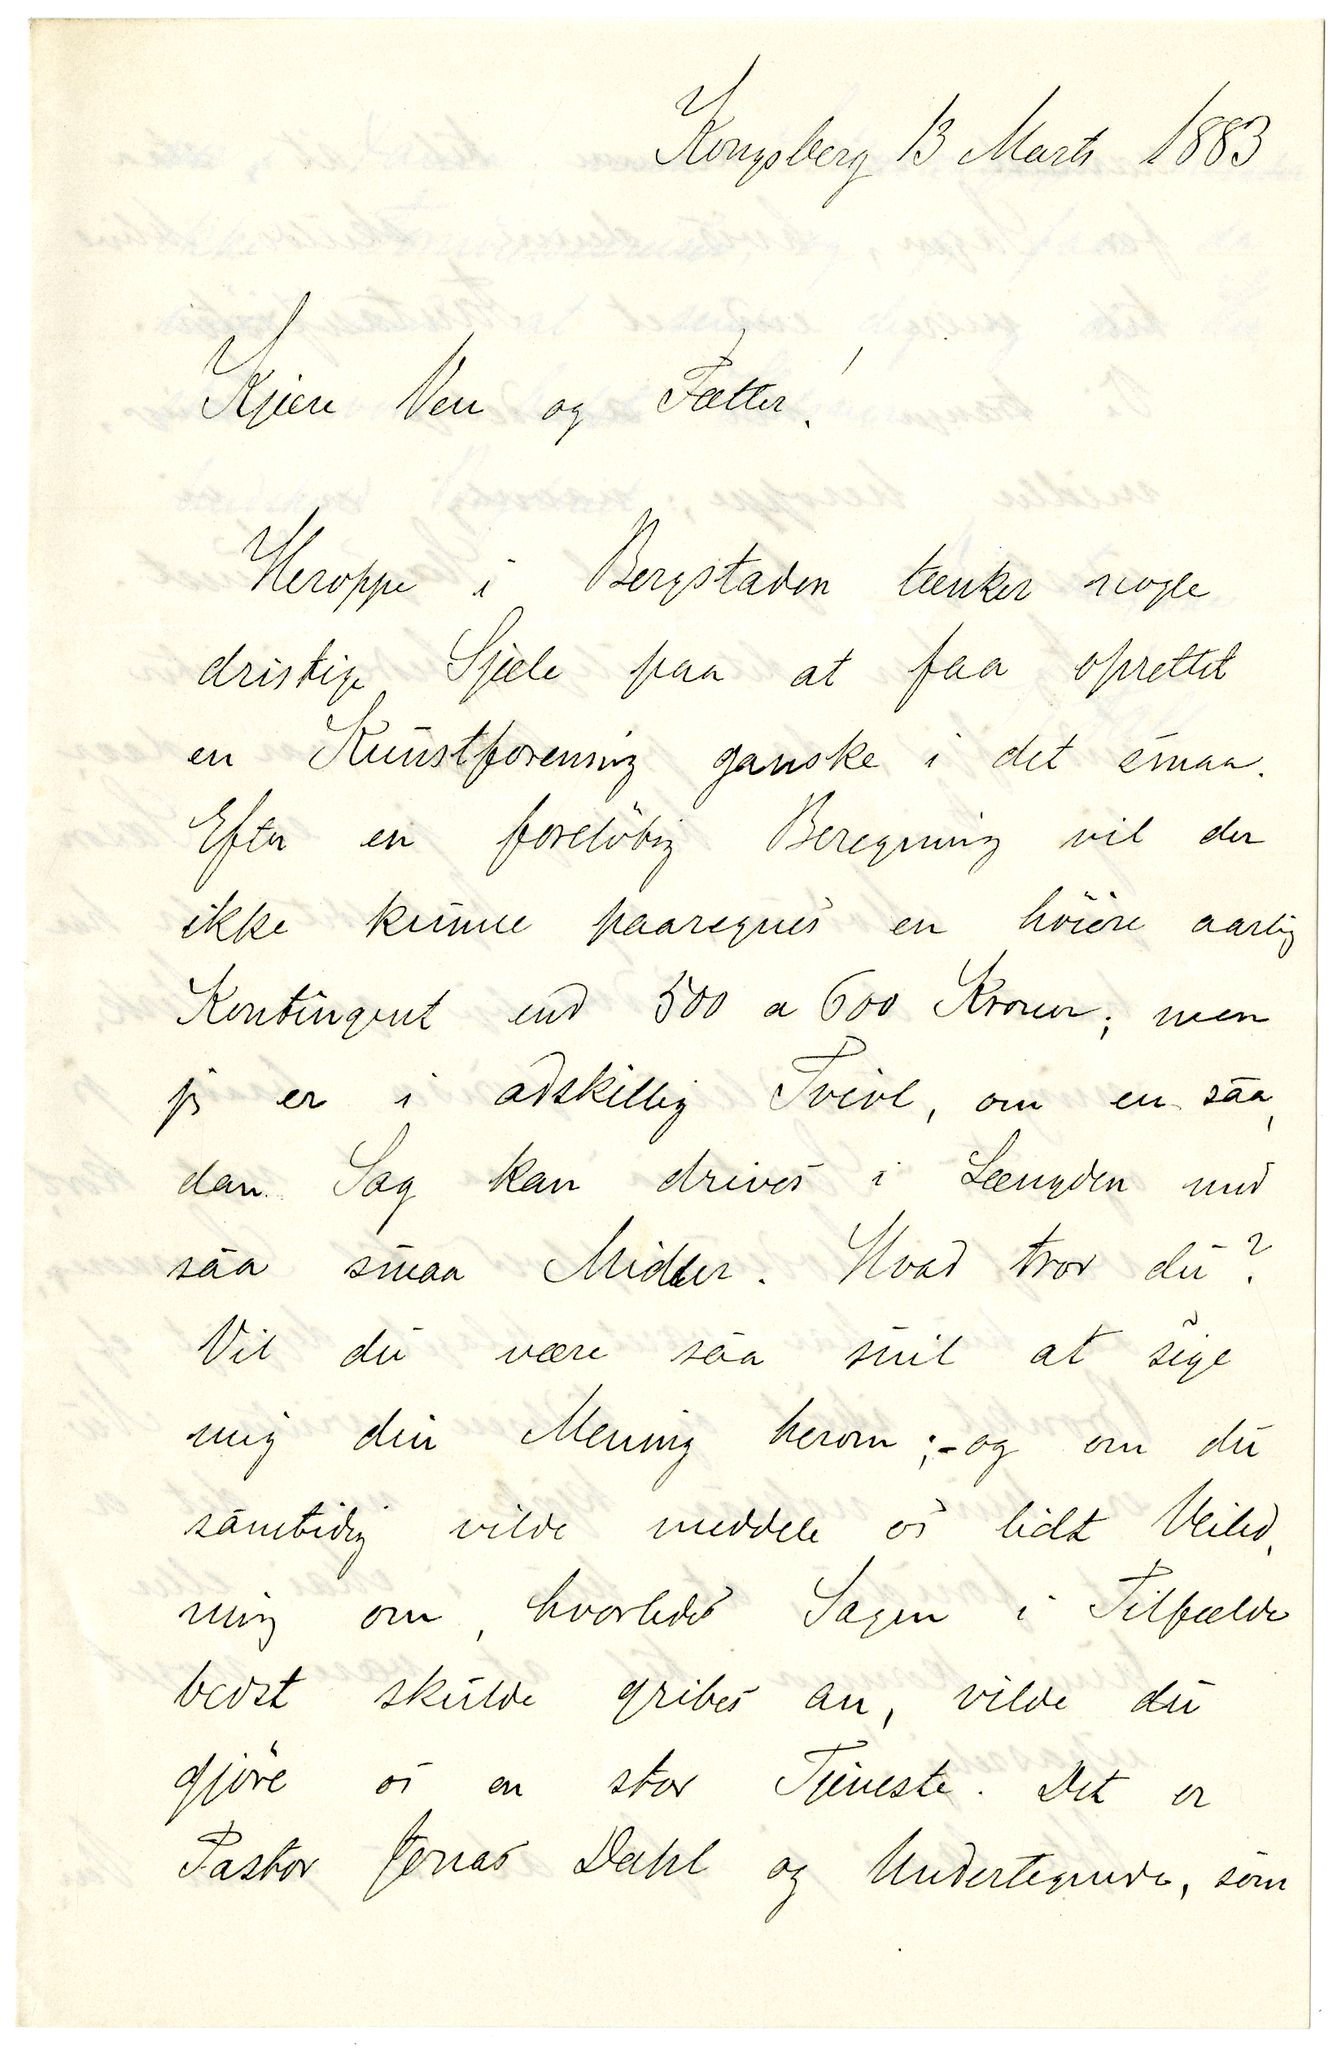 Kongsberg 13 Marts 1883
Kjære Ven og Fætter!
Heroppe i Bergstaden tænker nogle
dristige Sjæle paa at faa oprettet
en Kunstforening ganske i det smaa.
Efter en foreløbig Beregning vil der
ikke kunne paaregnes en høiere aarlig
Kontingent end 500 a 600 Kroner; men
jeg er i adskillig Tvivl, om en saa,
dan Sag kan drives i Længden med
saa smaa Midler. Hvad tror du?
Vil du være saa snil at sige
mig din Mening herom; - og om du
samtidig vilde meddele os lidt Veiled,
ning om, hvorledes Sagen i Tilfælde
bedst skulde gribes an, vilde du
gjøre os en stor Tjeneste. Det er
Pastor Jonas Dahl og Undertegnede, som